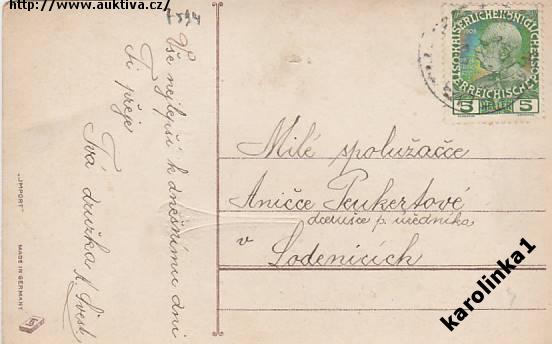 http://www.auktiva.cz/
7594
Vše nejlepší k dnešnímu dni
Ti přeje
Tvá družka
"IMPORT"
MADE IN GERMANY
KAISERLICHE KÖNIGLICHE
ÖSTERREICHISCHE POST
1908
5 HELLER 5
Milé spolužačce
Aničce Peukertové
dcerušce p. úředníka
v Loděnicích
karolinka1